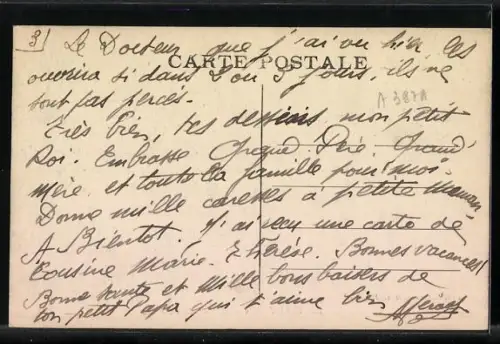 3)
Le Docteur que j'ai vu hier les
CARTE POSTALE
ouvrira si dans 2 ou 3 jours, ils ne
sont pas percés.
A 387A
Très bien, tes dessins, mon petit
Roi. Embrasse Grand Père Grand'
Mère et toute la famille pour moi.
Donne mille caresses à petite Maman.
A Bientôt. J'ai reçu une carte de
Cousine Marie-Thérèse. Bonnes vacances!
Bonne santé et Mille bons baisers de
ton petit Papa qui t'aime bien